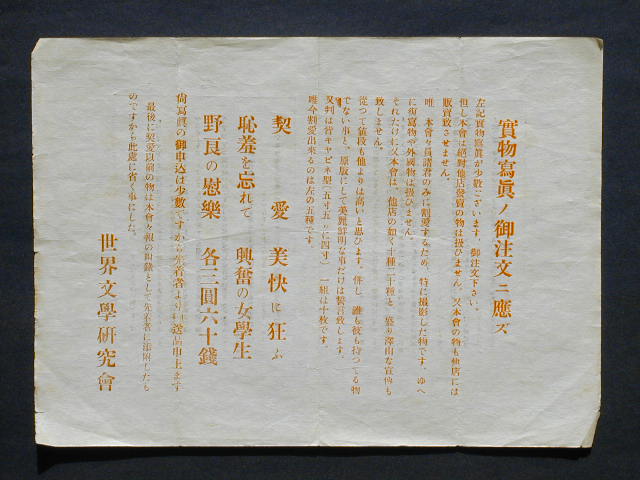 實物寫眞ノ御注文ニ應ズ
左記實物寫眞が少數ございます、御注文下さい。
但し本會は絕對他店發賣の物は扱ひません。又本會の物も他店には
販賣致させません。
唯、本會々員諸君のみに割愛するため、特に撮影した物です。ゆへ
に復寫物や外國物は扱ひません。
それだけに又本會は、他店の如く十種二十種と、餘り澤山な宣傳も
致しません。
從つて値段も他よりは高いと思ひます。併し、誰も彼も持つてる物
でない事と、原版にして美麗鮮明な事だけは誓言致します。
又判は皆キャビネ型(五寸五分に四寸)一組は十枚です。
唯今割愛出來るのは左の五種です。
契愛 美快に狂ふ
恥羞を忘れて 興奮の女學生
野良の慰樂 各三圓六十錢
尙寫眞の御申込は少數ですから先着者より順送品申上ます
最後に契愛以前の物は本會々報の附錄として先着者に添附したも
のですから此處に省く事にした。
世界文學研究會